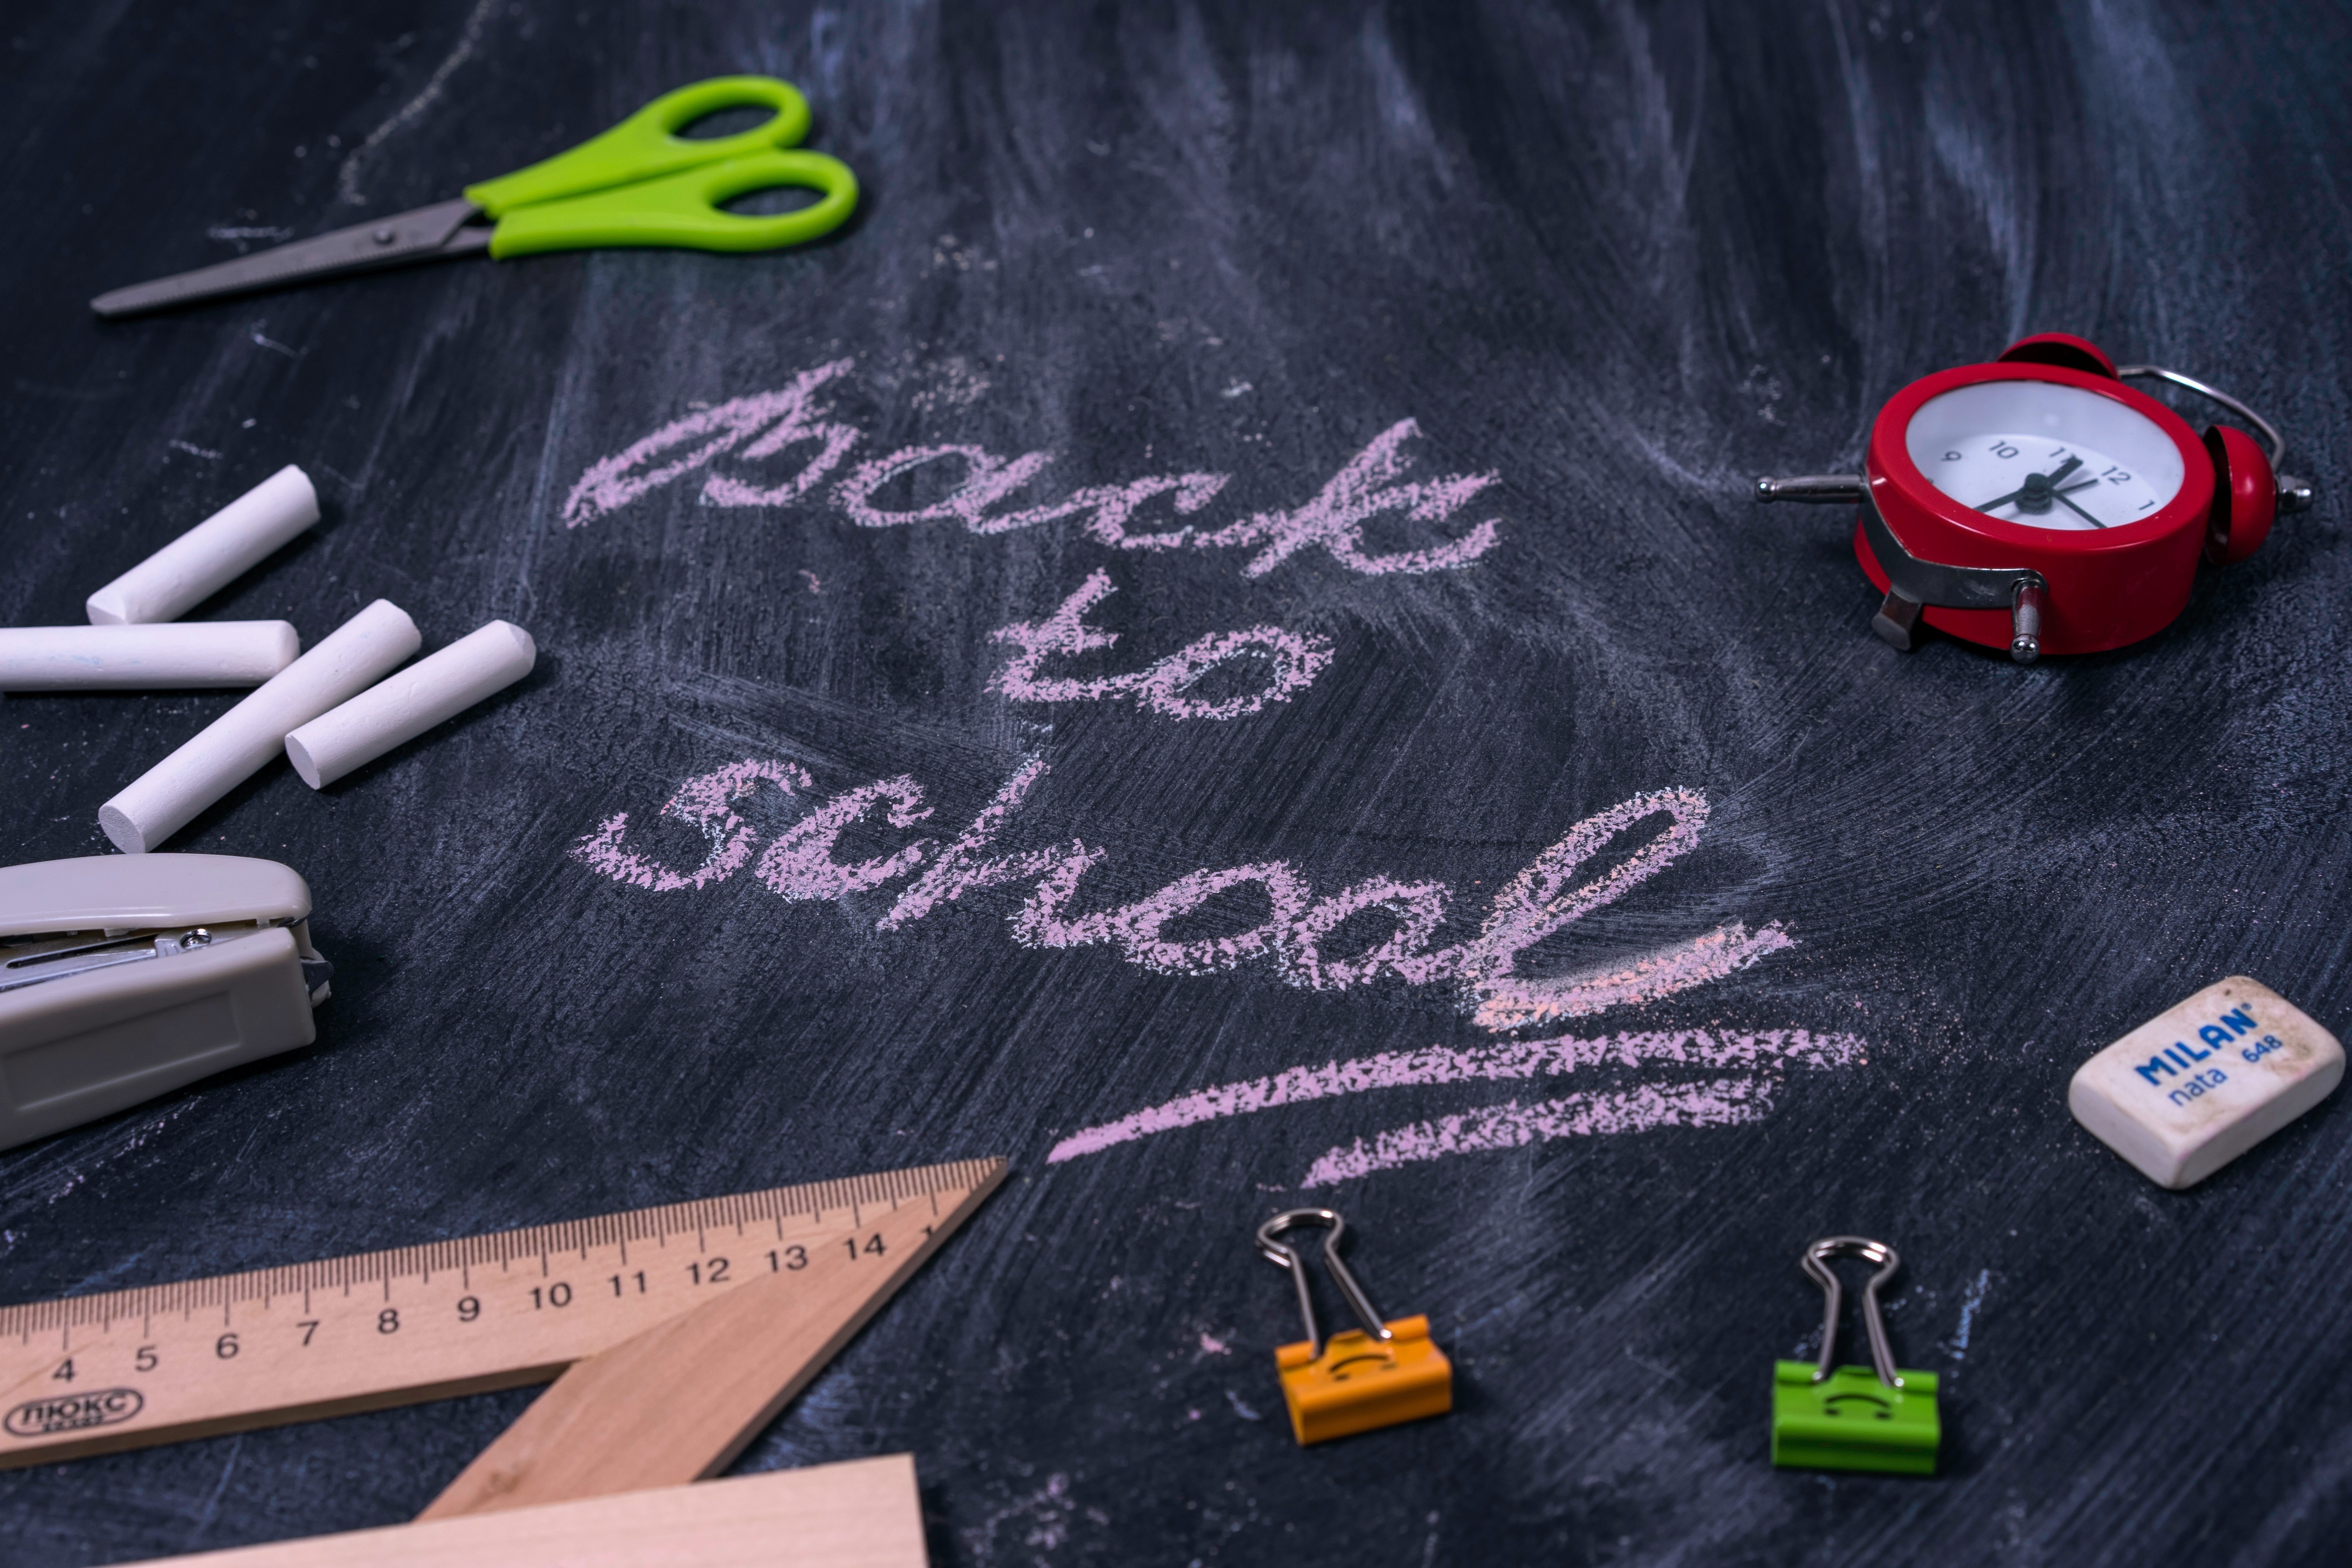 back
to
school
9 10 11 12 1
MILAN®
648
nata
4 5 6 7 8 9 10 11 12 13 14
ПЮКС